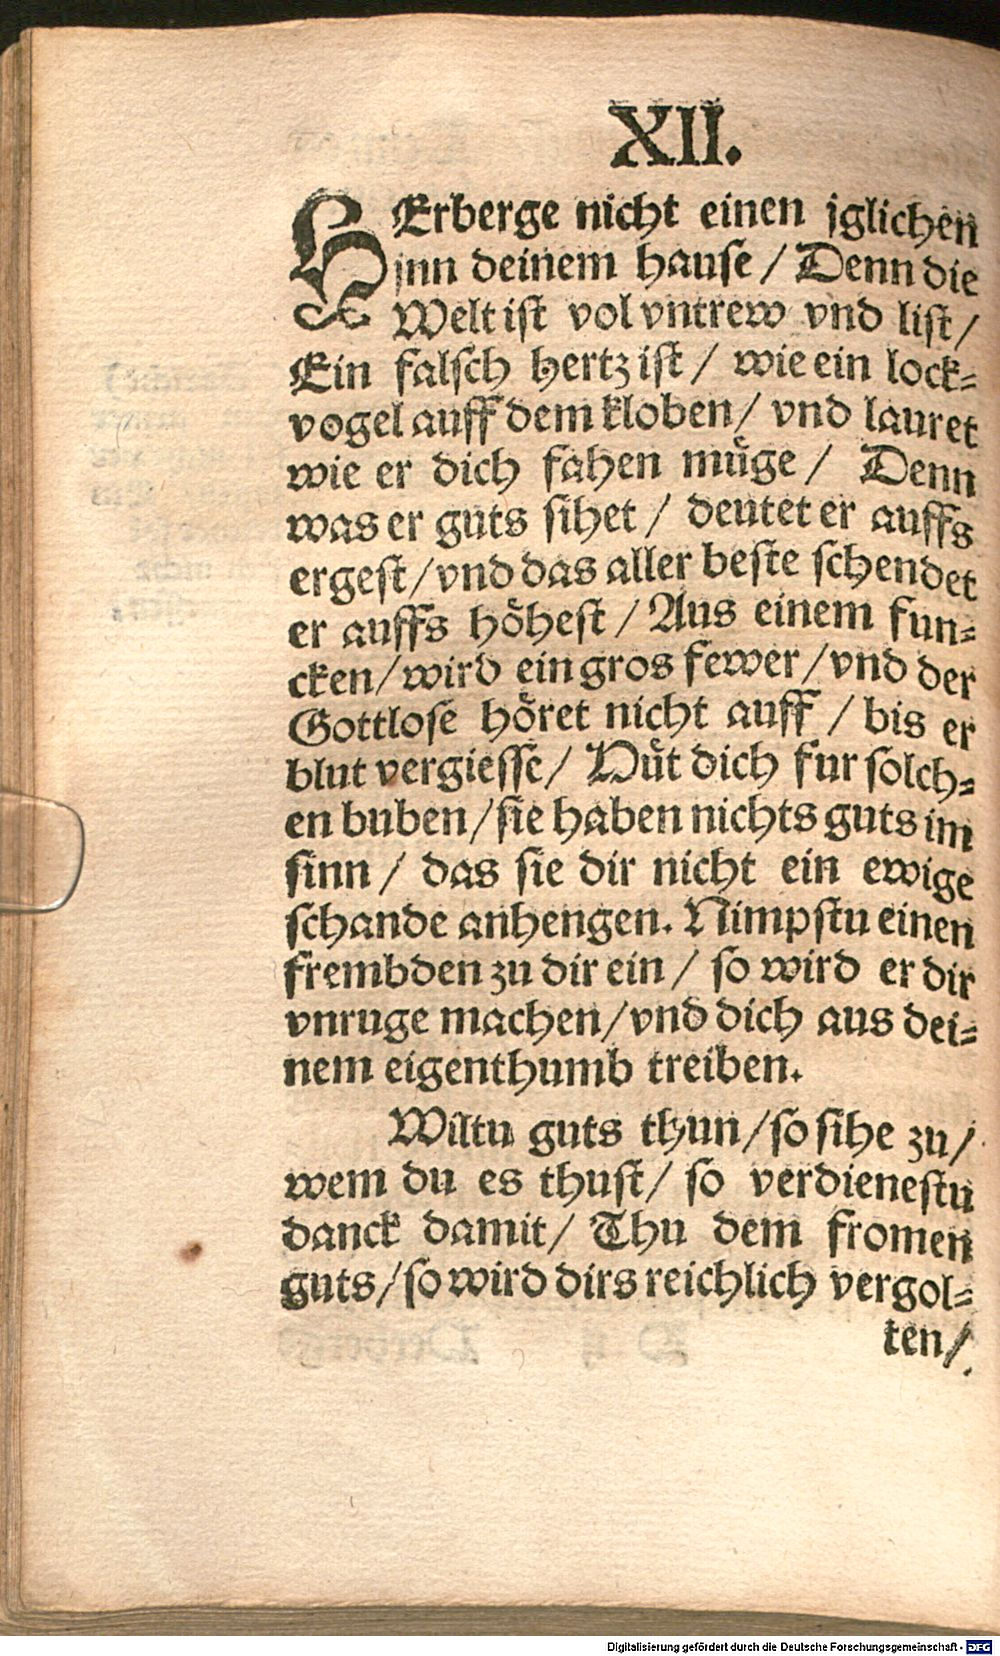 XII.
HErberge nicht einen jglichen
jnn deinem hause / Denn die
Welt ist vol vntrew vnd list /
Ein falsch hertz ist / wie ein lock⸗
vogel auff dem kloben / vnd lauret
wie er dich fahen müge / Denn
was er guts sihet / deutet er auffs
ergest / vnd das aller beste schendet
er auffs höhest / Aus einem fun⸗
cken / wird ein gros fewer / vnd der
Gottlose höret nicht auff / bis er
blut vergiesse / Hüt dich fur solch⸗
en buben / sie haben nichts guts im
sinn / das sie dir nicht ein ewige
schande anhengen. Nimpstu einen
frembden zu dir ein / so wird er dir
vnruge machen / vnd dich aus dei⸗
nem eigenthumb treiben.
Wiltu guts thun / so sihe zu /
wem du es thust / so verdienestu
danck damit / Thu dem fromen
guts / so wird dirs reichlich vergol⸗
ten /
Digitalisierung gefördert durch die Deutsche Forschungsgemeinschaft - DFG